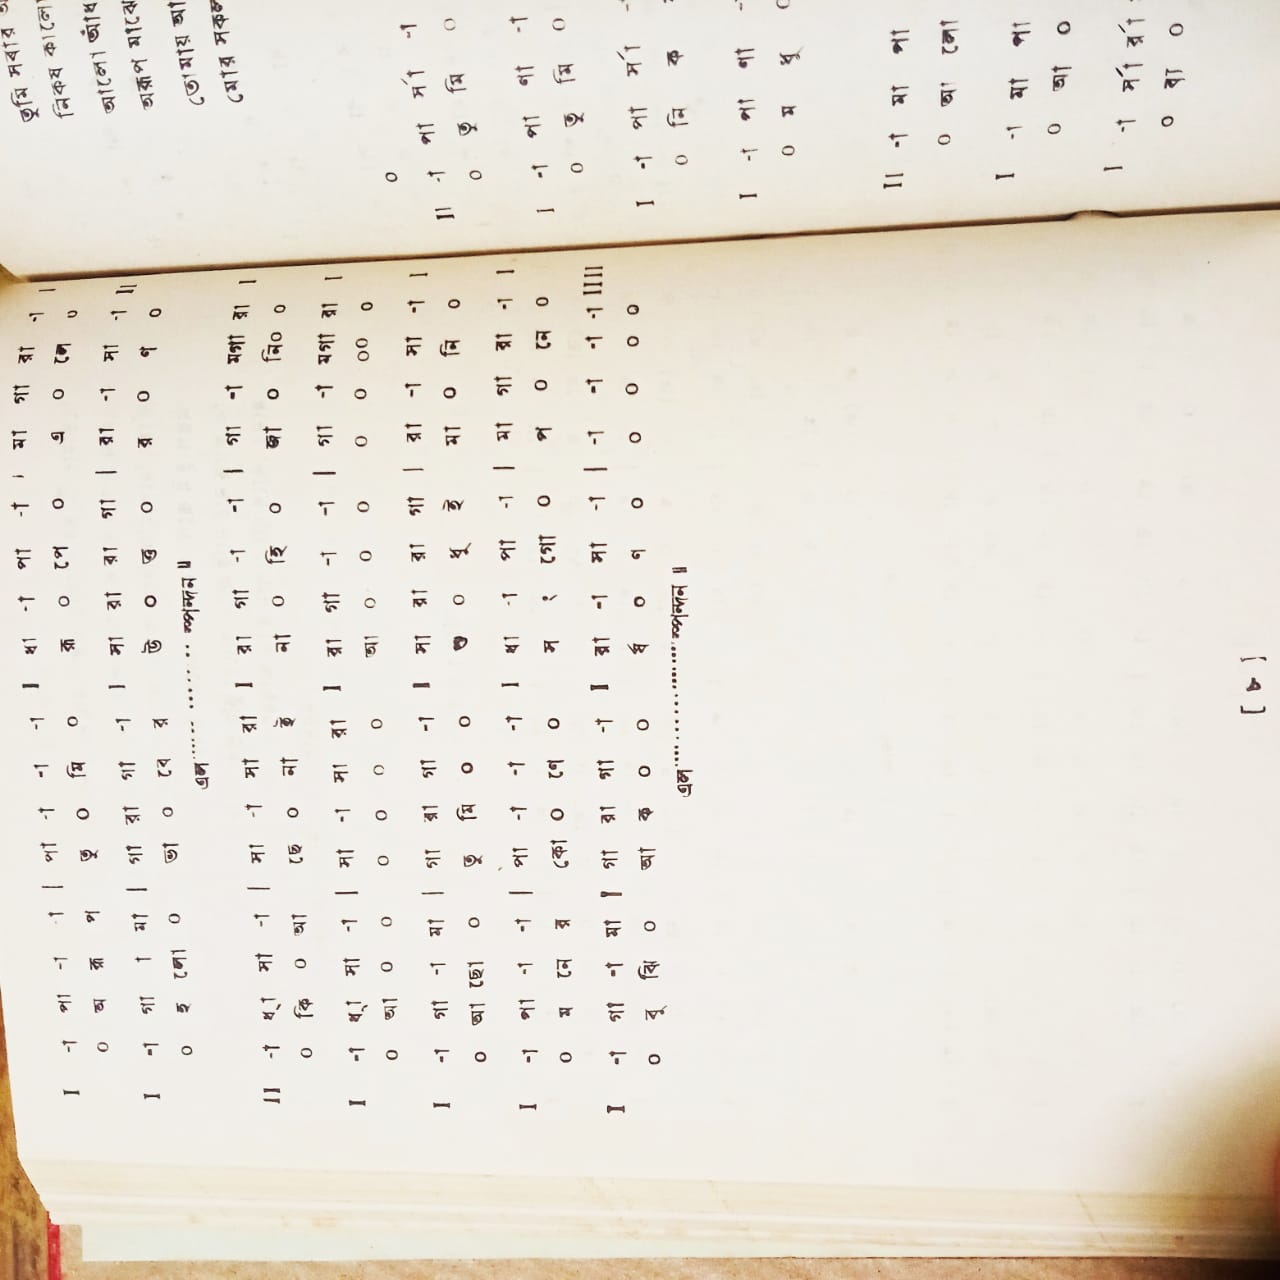 I -া পা -া -া | পা -া -া -া I ধা -া পা -া | মা গা রা -া I
০ অ রূ প তু ০ মি ০ রূ ০ পে ০ এ ০ লে ০
I -া গা া মা | গা রা গা -া I সা রা রা গা | রা -া সা -া II
০ হ লো ০ তা ০ বে র উ ০ ত্ত ০ র ০ ণ ০
এল............স্পন্দন ॥
II -া ধ্া সা -া | সা -া সা রা I রা গা -া -া | গা -া মগা রা I
০ কি ০ আ ছে ০ না ই না ০ হি ০ জা ০ নি০ ০
I -া ধ্া সা -া | সা -া সা রা I রা গা -া -া | গা -া মগা রা I
০ আ ০ ০ ০ ০ ০ ০ আ ০ ০ ০ ০ ০ ০০ ০
I -া গা -া মা | গা রা গা -া I সা রা রা গা | রা -া সা -া I
০ আ ছো ০ তু মি ০ ০ ০ ধূ ই মা ০ নি ০
I -া পা -া -া | পা -া -া -া I ধা -া পা -া | মা গা রা -া I
০ ম নে র কো ০ ণে ০ স ং গো ০ প ০ নে ০
I -া গা -া মা | গা রা গা -া I রা -া সা -া | -া -া -া -া IIII
০ বু ঝি ০ আ ক ০ ০ র্ষ ০ ণ ০ ০ ০ ০ ০
এল............স্পন্দন ॥
[ ৮ ]
তুমি সবার
নিকষ কালো
আলো আঁধ
অরূপ মাঝে
তোমায় আ
মোর সকল
০
II -া পা র্সা -া
০ তু মি ০
I -া পা ণা -া
০ তু মি ০
I -া পা র্সা -া
০ নি ক
I -া পা ণা
০ ম ধু ০
II -া মা পা
০ আ লো
I -া মা পা
০ আ ০
I -া র্সা র্রা
০ রা ০